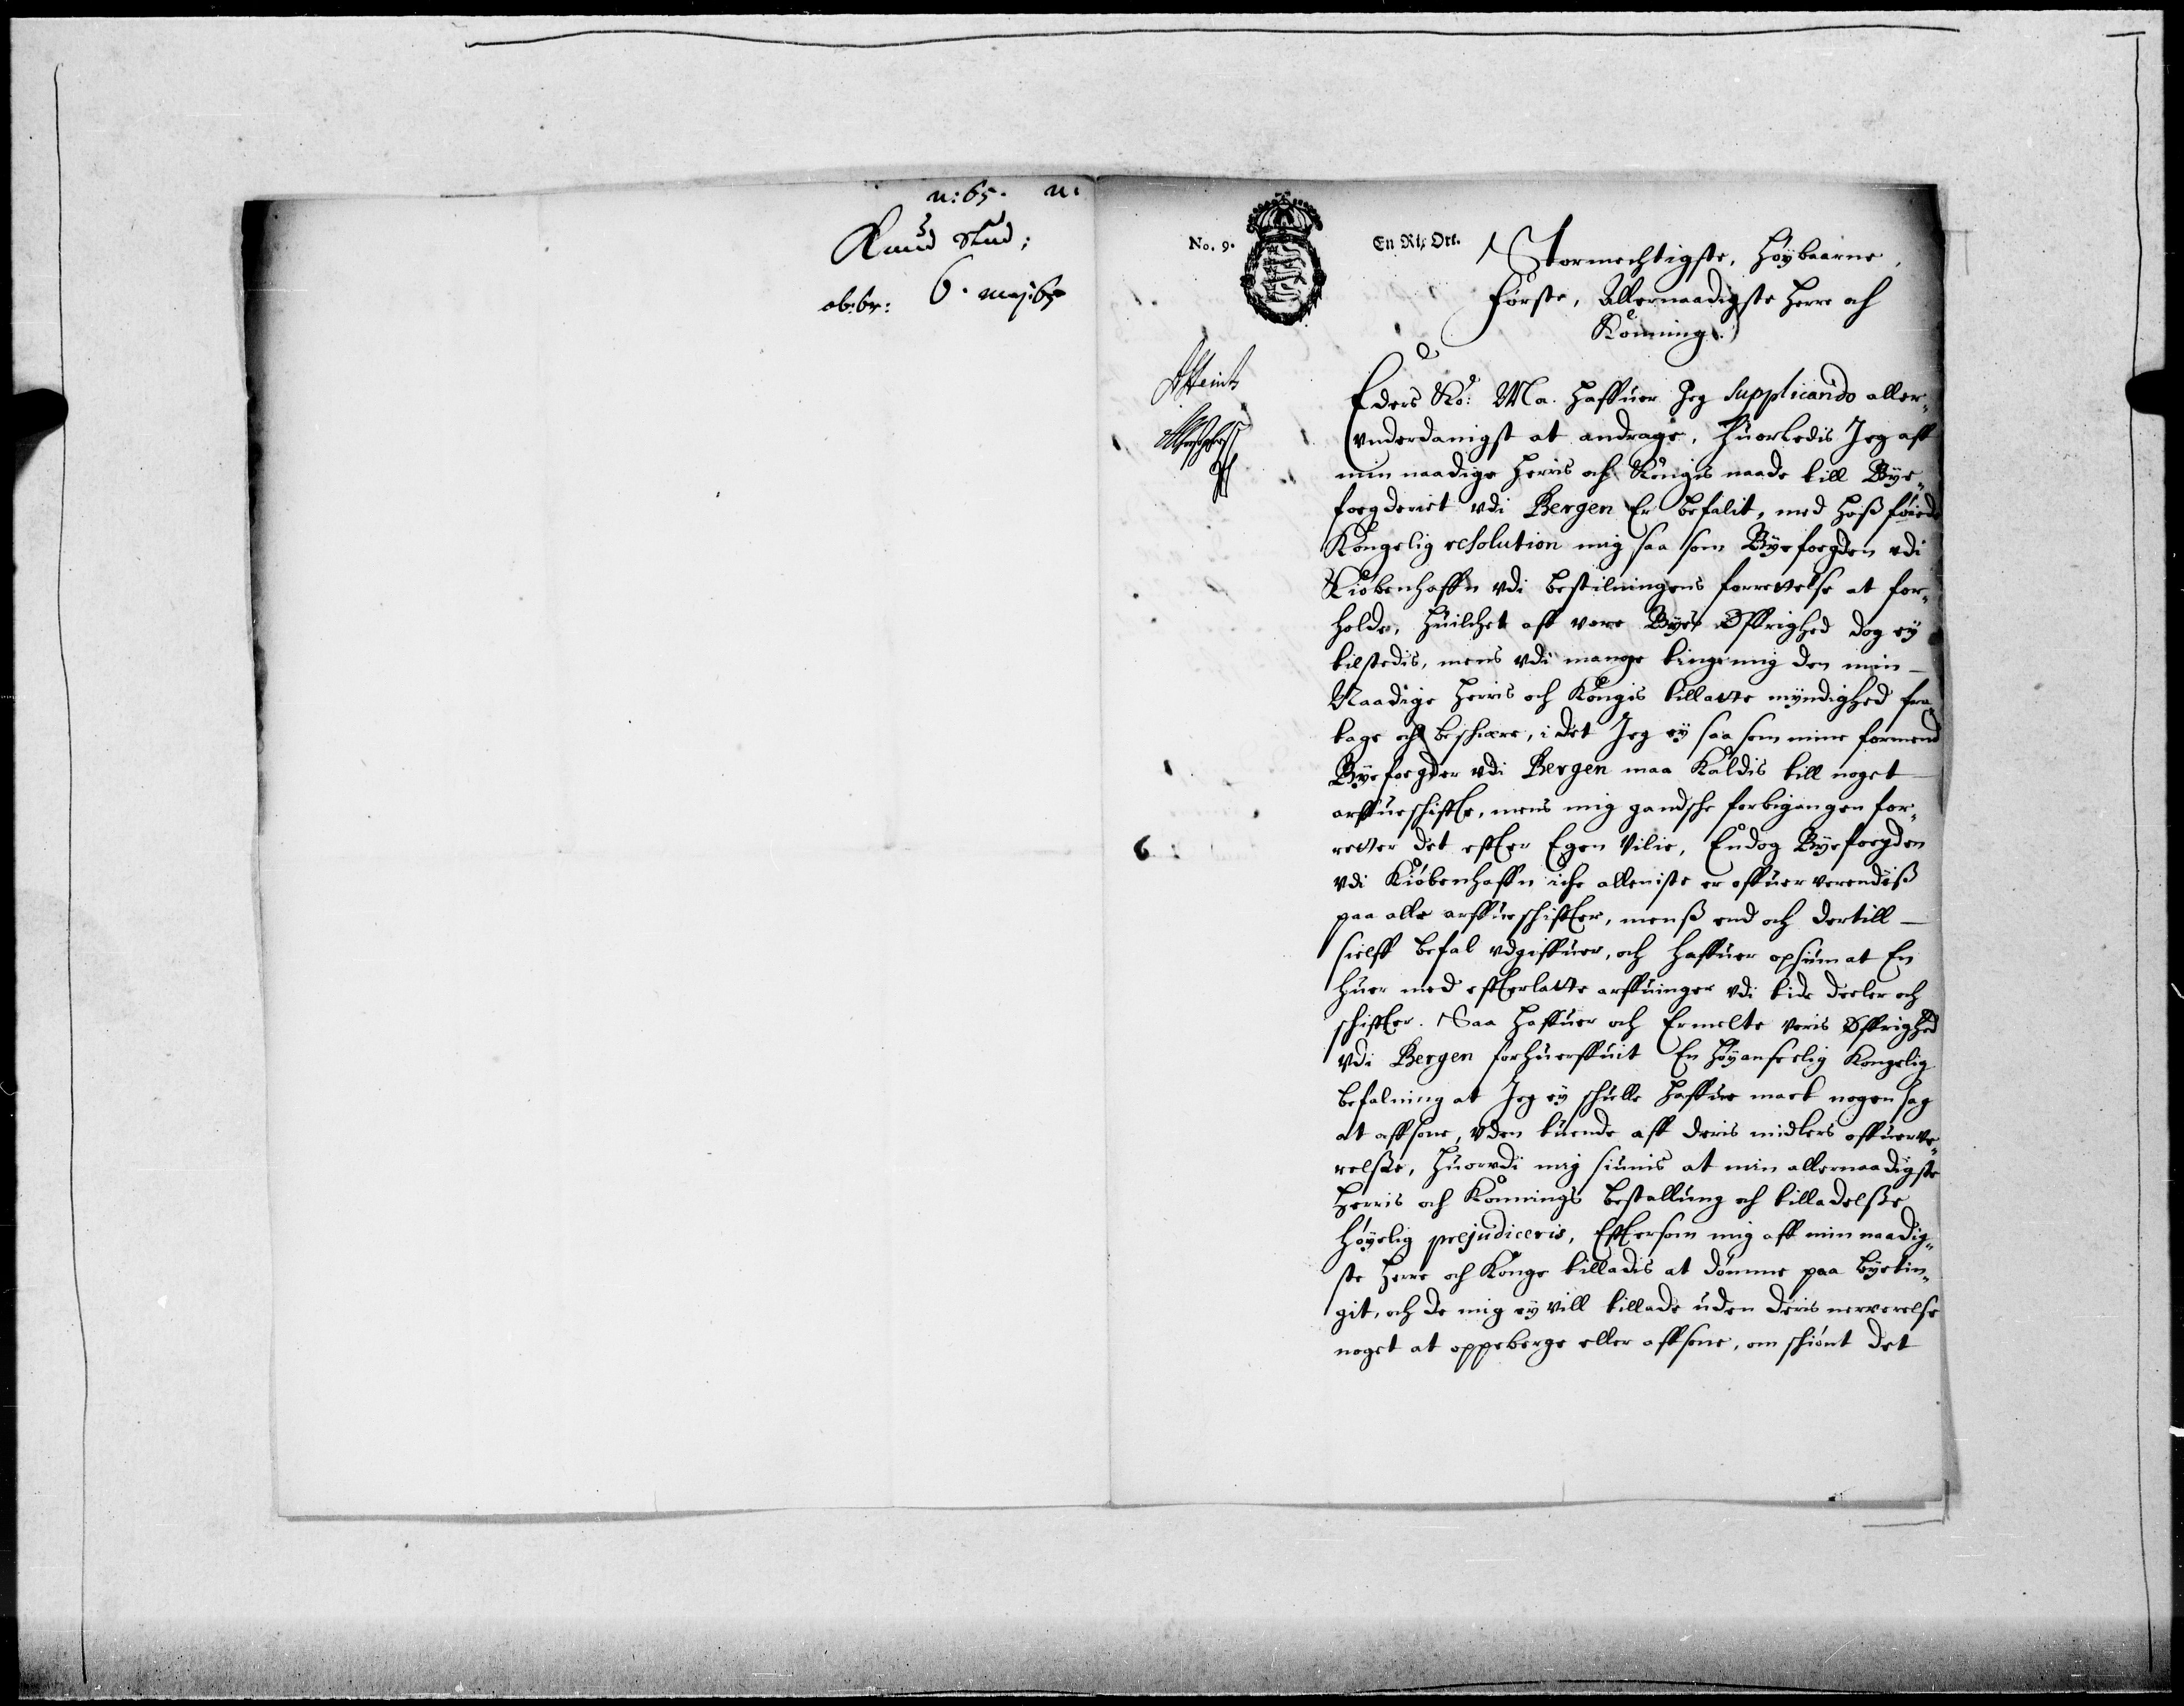 n: 65. n:
Knud Stud:
ob: br: 6. maj: 65
No. 9.
En Rix Ort.
Stormechtigste, Høybaarne,
Første, Allernaadigste Herre och
Konning.
Eders Ko: Ma. Haffuer Jeg Supplicando aller„
vnderdanigst at andrage, huorledis Jeg aff
min naadige Herris och Kongis naade till Bye„
foegderiet vdi Bergen Er befalit, med hoß føiede
Kongelig resolution mig saa som Byefoegden vdi
Kiøbenhaffn vdi bestilningens forrettelse at for„
holde, huilchet aff vore Byes Øffrighed dog ey
tilstedis, mens vdi mange ting mig den min
Naadige Herris och Kongis tillatte myndighed fra„
tage och beschiære, i det Jeg ey saa som mine formend
Byefoegder vdi Bergen maa kaldis till noget
arffueschiffte, mens mig gandsche forbigangen for„
retter det effter Egen Vilie, Endog Byefoegden
vdi Kiøbenhaffn iche alleniste er offuerverendiß
paa alle arffueschiffter, menß end och dertill
sielff befal vdgiffuer, och haffuer opsiun at En
huer med effterlatte arffuinger vdi tide deeler och
schiffter. Saa haffuer och Ermelte voris Øffrighed
vdi Bergen forhuerffuit En høyanseelig Kongelig
befalning at Jeg ey schulle haffue mact nogen sag
at affsone, vden tuende aff deris midlers offuerve„
relße, huorvdi mig siunis at min allernaadigste
Herris och Konnings bestallung och tilladelße
høyelig prejudiceris, Efftersom mig aff min naadig„
ste Herre och Konge tilladis at dømme paa bytin„
git, och de mig ey vill tillade uden deris nerverelse
noget at oppeberge eller affsone, om schiønt det